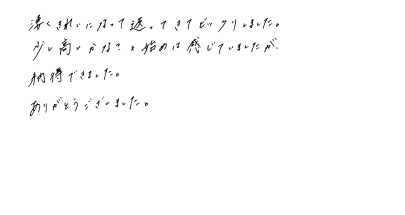 凄くきれいになって返ってきてビックリしました。
少し高いかな？と始めは感じていましたが、
納得できました。
ありがとうございました。